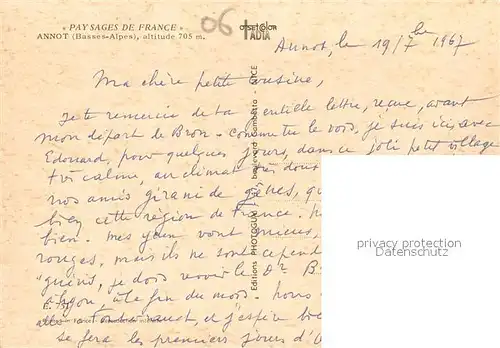 « PAYSAGES DE FRANCE »
ANNOT (Basses-Alpes), altitude 705 m.
06
OFFSET COLOR
IADIA
Annot, le 19/7bre 1967
Ma chère petite cousine,
Je te remercie de ta gentille lettre, reçue, avant
mon départ de Bron - comme tu le vois, je suis ici, avec
Edouard, pour quelques jours, dans ce joli petit village
très calme, au climat très doux
nos amis
bien cette région de France.
bien. mes yeux vont mieux,
rouges, mais ils ne sont cependant
"guéris, je dois revoir le Dr
à Lyon, à la fin du mois. nous
et j'espère
se fera les premiers jours d'
Editions PHOTOGUY 37, boulevard Gambetta - NICE
privacy protection
watermark